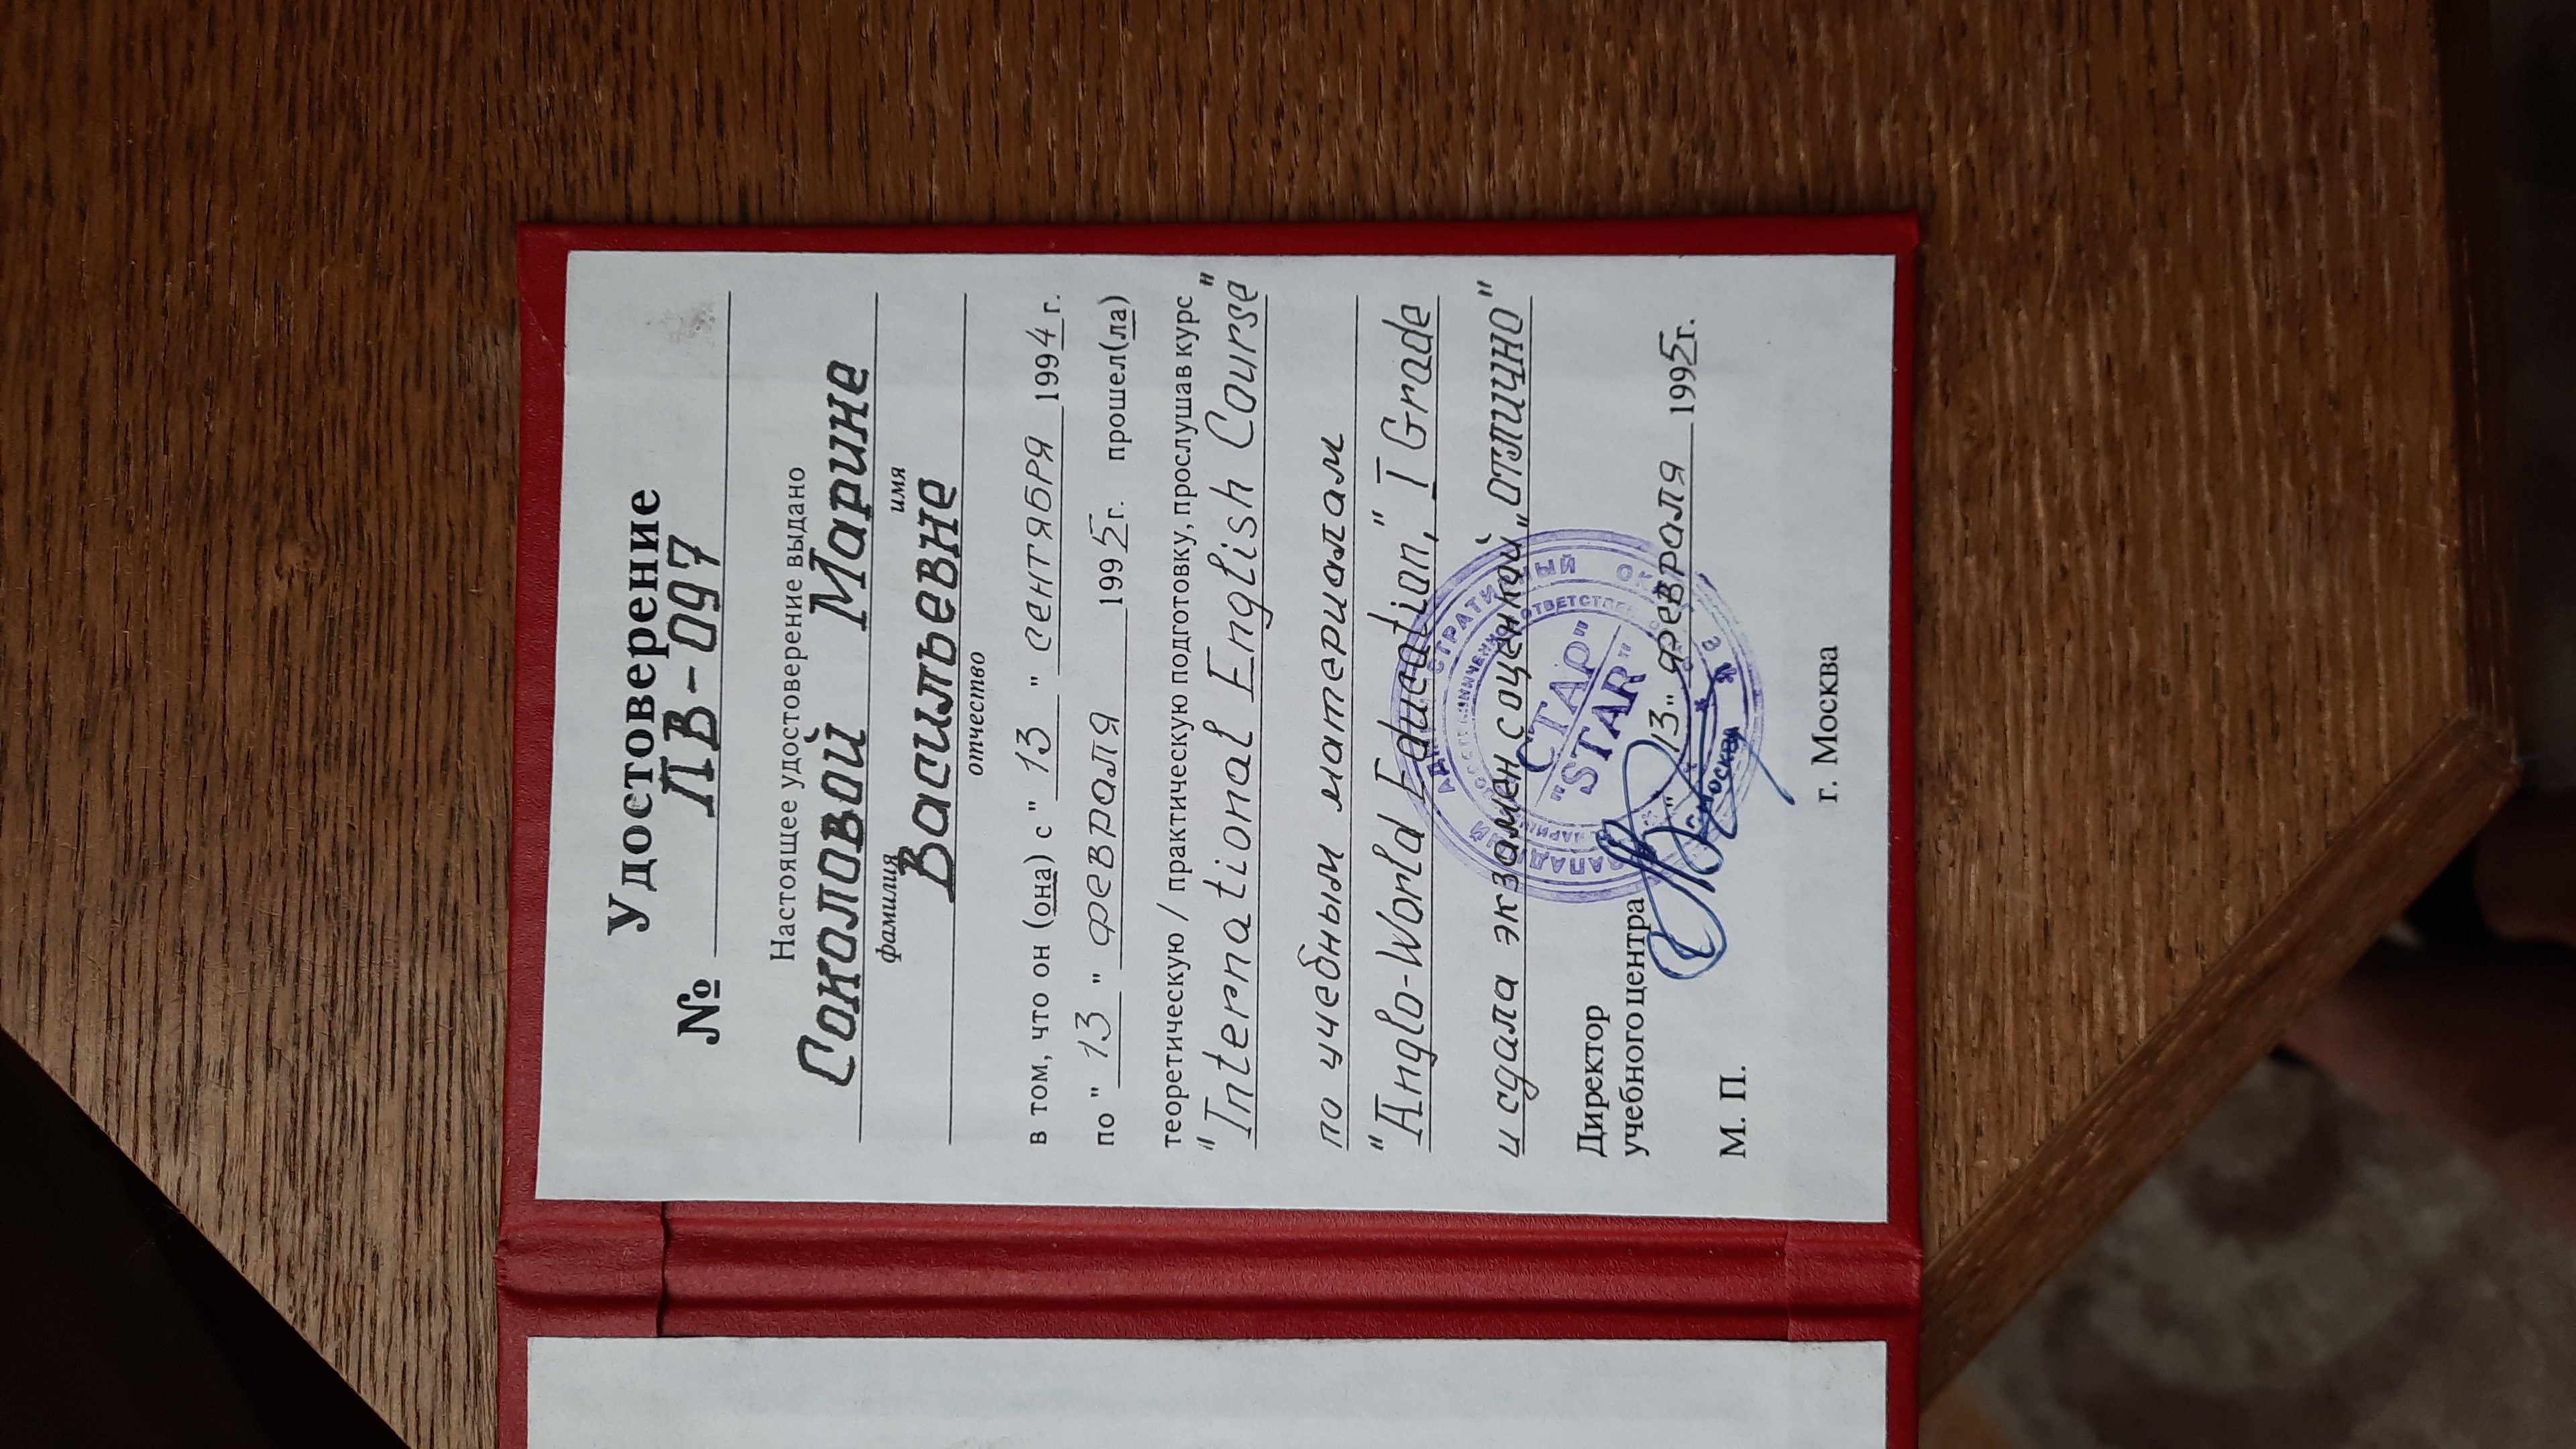 Удостоверение
№ ПВ-097
Настоящее удостоверение выдано
Соколовой Марине
фамилия имя
Васильевне
отчество
в том, что он (она) с "13" сентября 1994 г.
по "13" февраля 1995 г. прошел(ла)
теоретическую / практическую подготовку, прослушав курс
"International English Course"
по учебным материалам
"Anglo-World Education," I Grade
и сдала экзамен с оценкой „отлично"
Директор
учебного центра
"13" февраля 1995 г.
М. П.
г. Москва
"СТАР"
"STAR"
Москва